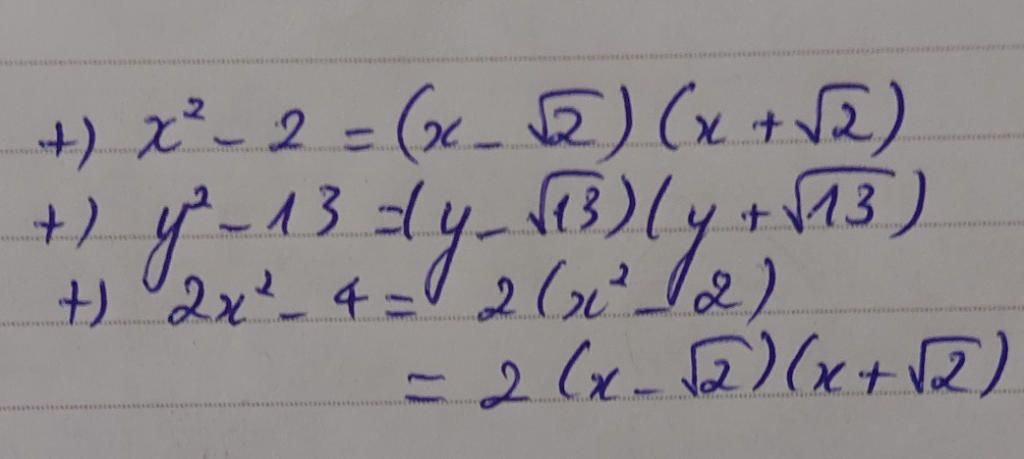 +) x² - 2 = (x - √2) (x + √2)
+) y² - 13 = (y - √13) (y + √13)
+) 2x² - 4 = 2 (x² - 2)
= 2 (x - √2) (x + √2)